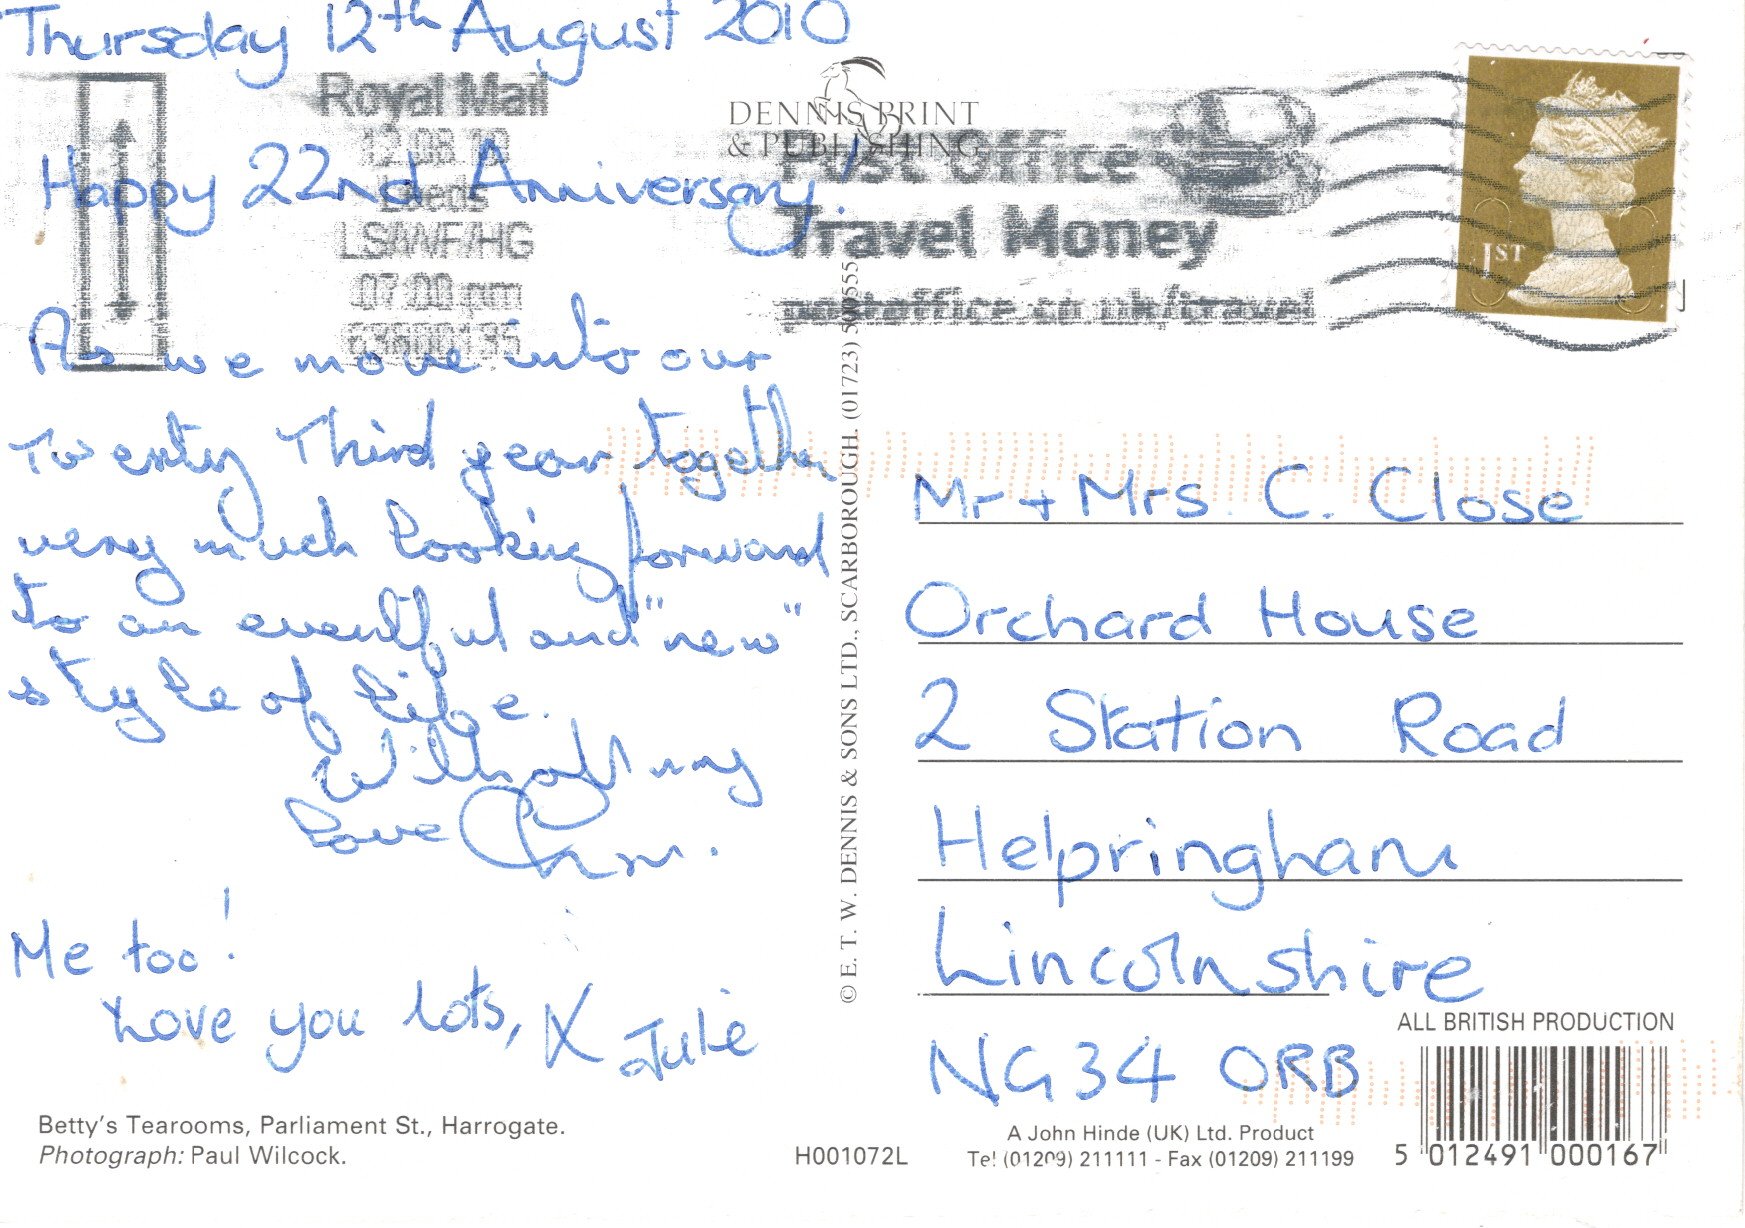 Thursday 12th August 2010
Happy 22nd Anniversary!
As we move into our
Twenty Third year together
very much looking forward
to an eventful and "new"
style of life.
With all my
love Chris.
Me too!
Love you lots, X Julie
Betty's Tearooms, Parliament St., Harrogate.
Photograph: Paul Wilcock.
Royal Mail
12.08.10
Leeds
LS/WF/HG
07:00 pm
DENNIS PRINT
& PUBLISHING
Post Office
Travel Money
postoffice.co.uk/travel
1ST
© E. T. W. DENNIS & SONS LTD., SCARBOROUGH. (01723) 500555
Mr + Mrs. C. Close
Orchard House
2 Station Road
Helpringham
Lincolnshire
NG34 0RB
ALL BRITISH PRODUCTION
H001072L
A John Hinde (UK) Ltd. Product
Tel (01209) 211111 - Fax (01209) 211199
5 012491 000167